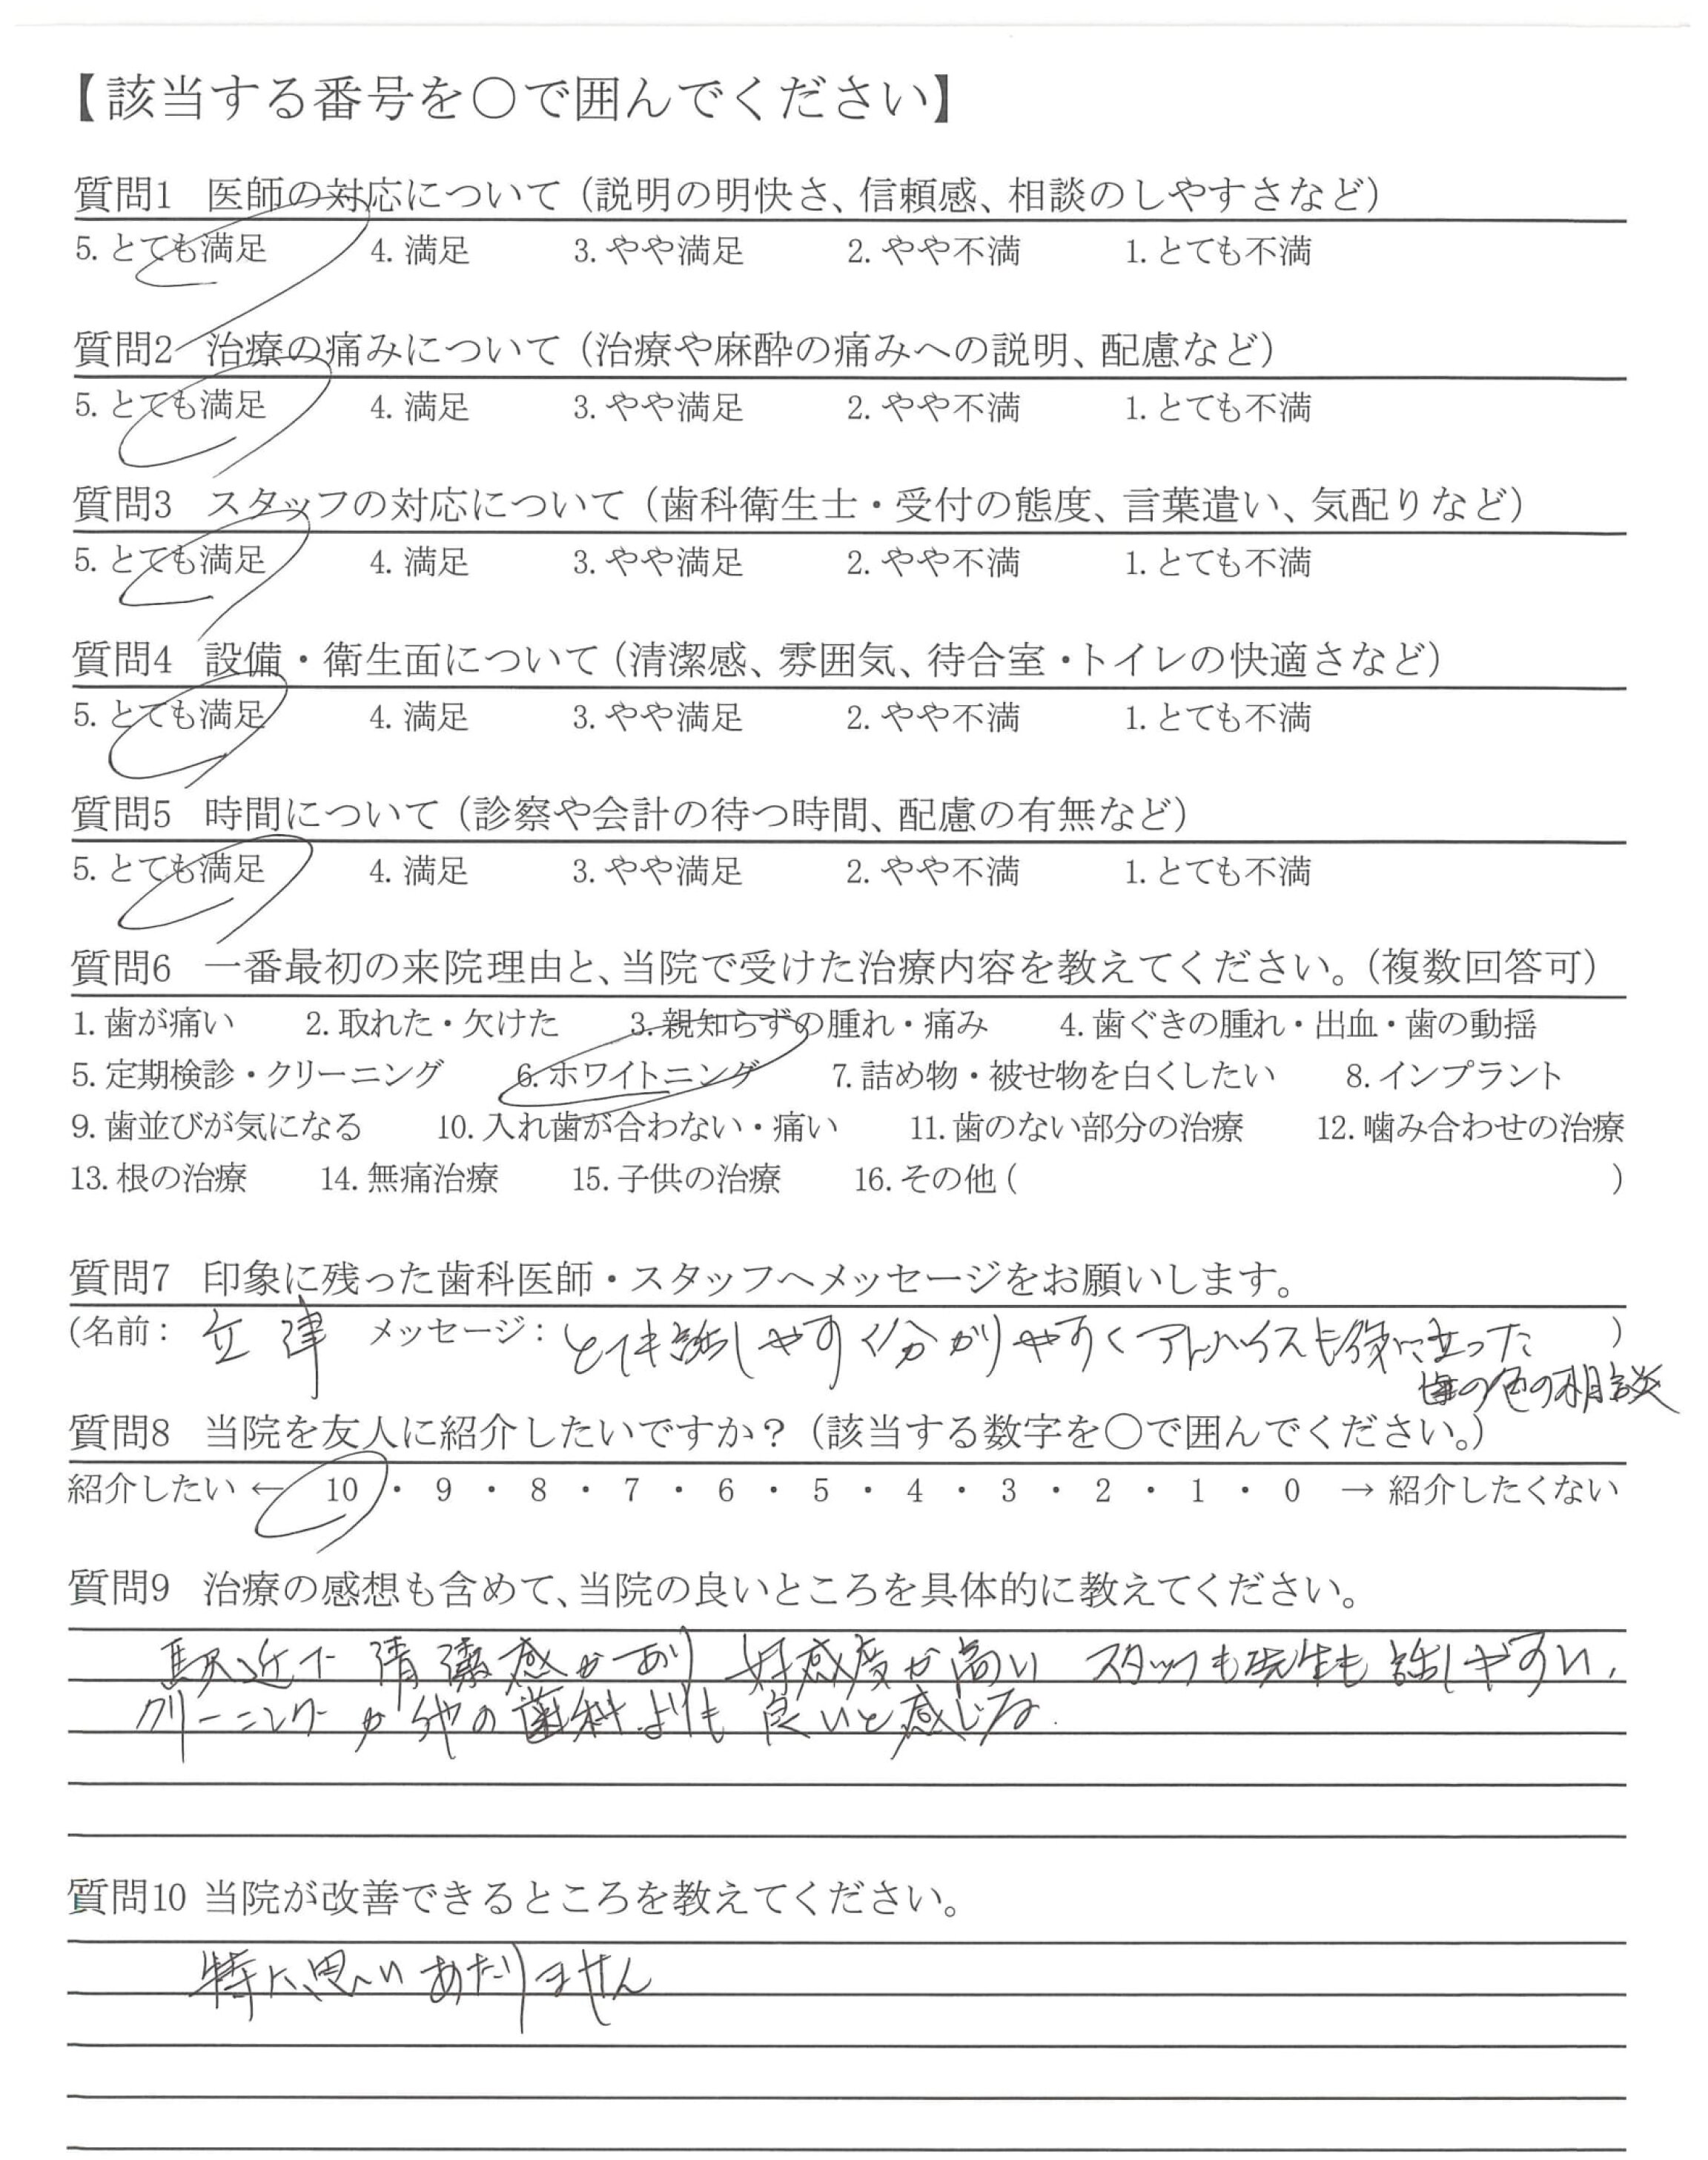 【該当する番号を○で囲んでください】
質問1 医師の対応について（説明の明快さ、信頼感、相談のしやすさなど）
5. とても満足 4. 満足 3. やや満足 2. やや不満 1. とても不満
質問2 治療の痛みについて（治療や麻酔の痛みへの説明、配慮など）
5. とても満足 4. 満足 3. やや満足 2. やや不満 1. とても不満
質問3 スタッフの対応について（歯科衛生士・受付の態度、言葉遣い、気配りなど）
5. とても満足 4. 満足 3. やや満足 2. やや不満 1. とても不満
質問4 設備・衛生面について（清潔感、雰囲気、待合室・トイレの快適さなど）
5. とても満足 4. 満足 3. やや満足 2. やや不満 1. とても不満
質問5 時間について（診察や会計の待つ時間、配慮の有無など）
5. とても満足 4. 満足 3. やや満足 2. やや不満 1. とても不満
質問6 一番最初の来院理由と、当院で受けた治療内容を教えてください。（複数回答可）
1. 歯が痛い 2. 取れた・欠けた 3. 親知らずの腫れ・痛み 4. 歯ぐきの腫れ・出血・歯の動揺
5. 定期検診・クリーニング 6. ホワイトニング 7. 詰め物・被せ物を白くしたい 8. インプラント
9. 歯並びが気になる 10. 入れ歯が合わない・痛い 11. 歯のない部分の治療 12. 噛み合わせの治療
13. 根の治療 14. 無痛治療 15. 子供の治療 16. その他（ ）
質問7 印象に残った歯科医師・スタッフへメッセージをお願いします。
（名前： 立津 メッセージ： とても話しやすく分かりやすくアドバイスも役に立った ）
歯の色の相談
質問8 当院を友人に紹介したいですか？（該当する数字を○で囲んでください。）
紹介したい ← 10 ・ 9 ・ 8 ・ 7 ・ 6 ・ 5 ・ 4 ・ 3 ・ 2 ・ 1 ・ 0 → 紹介したくない
質問9 治療の感想も含めて、当院の良いところを具体的に教えてください。
駅近で 清潔感があり 好感度が高い スタッフも先生も話しやすい.
クリーニングが他の歯科よりも良いと感じる.
質問10 当院が改善できるところを教えてください。
特に思いあたりません